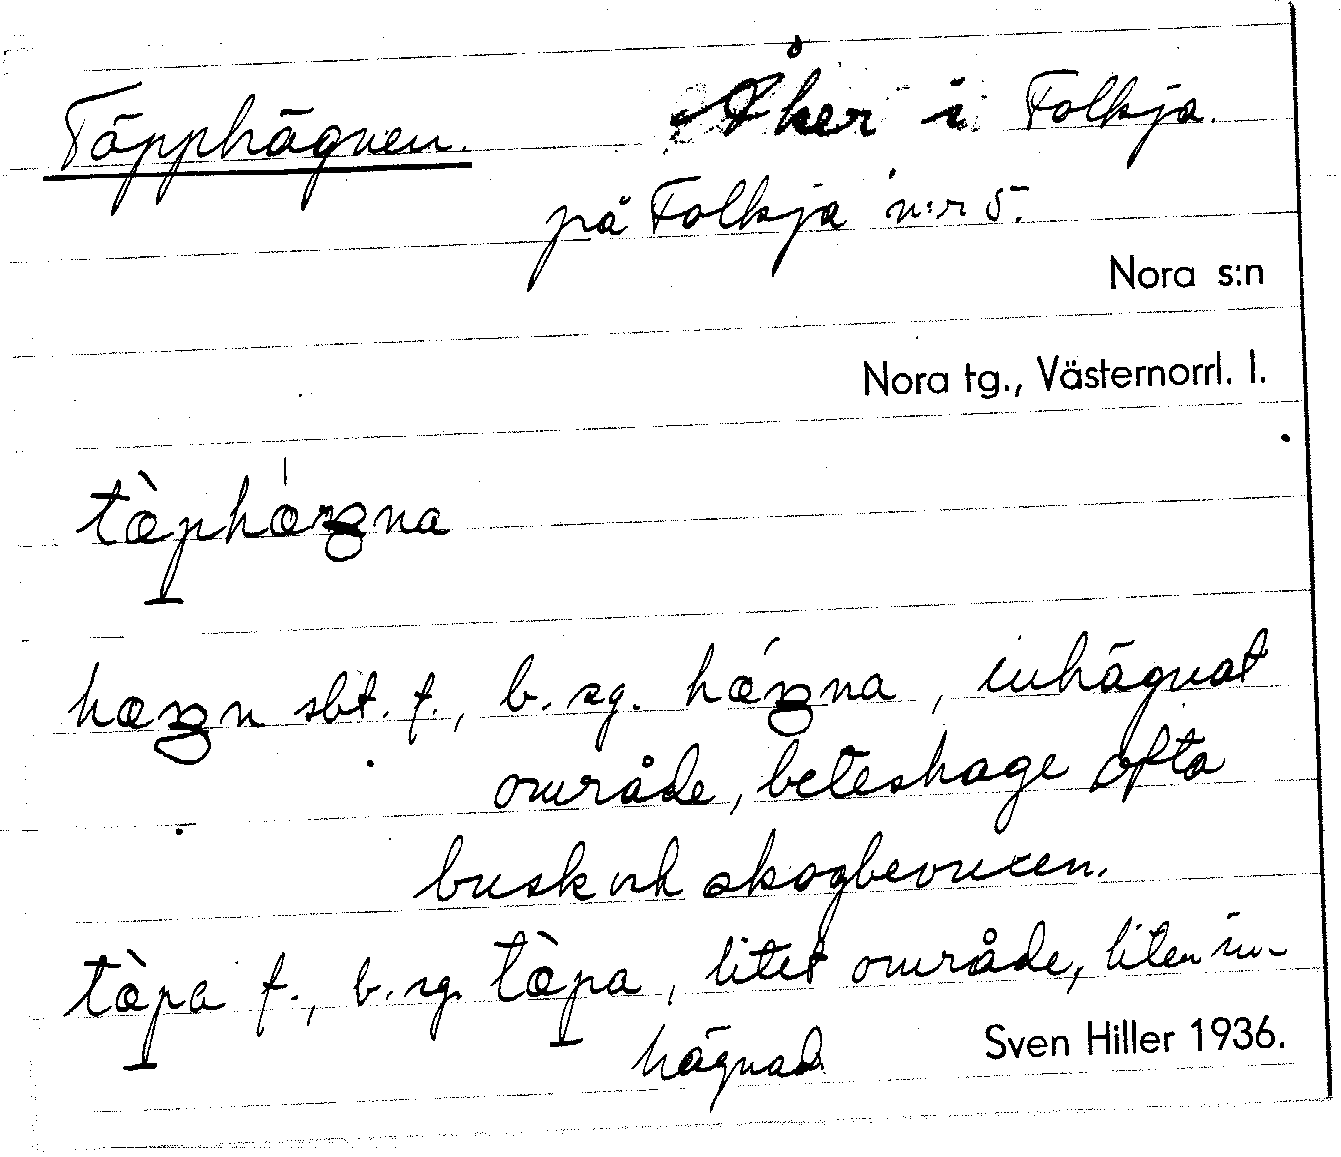 Täpphägnen. Åker i Folkja.
på Folkja n:r 5.
Nora s:n
Nora tg., Västernorrl. l.
tæ̀phæ̀ŋna
hæŋn sbt. f., b. sg. hǽŋna, inhägnat
område, beteshage ofta
busk och skogbevuxen.
tæ̀pa f., b. sg. tæ̀pa, litet område, liten in-
hägnad
Sven Hiller 1936.